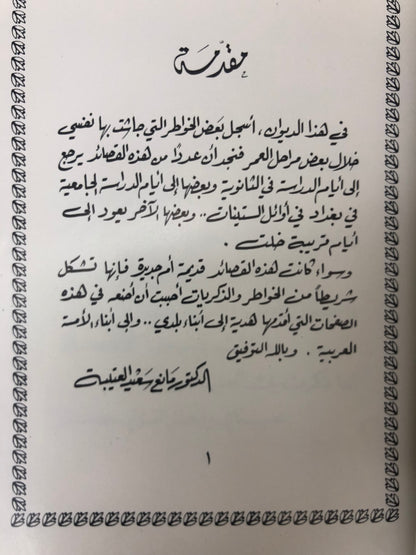 مقدّمة
في هذا الديوان ، أسجل بَعض الخواطر التي جاشت بها نفسي
خلال بعض مراحل العمر فنجد أن عددًا من هذه القصائد يرجع
إلى أيام الدراسة في الثانوية وبعضها إلى أيام الدراسة الجامعية
في بغداد في أوائل الستينات .. وبعضها الآخر يعود الى
أيام قريبة خلت .
وسواء كانت هذه القصائد قديمة أم جديدة فإنها تشكل
شريطاً من الخواطر والذكريات أحببت أن أضعه في هذه
الصفحات التي أقدمها هدية إلى أبناء بلدي .. وإلى أبناء الأمة
العربية . وبالله التوفيق
الدكتور مانع سعيد العتيبة
١